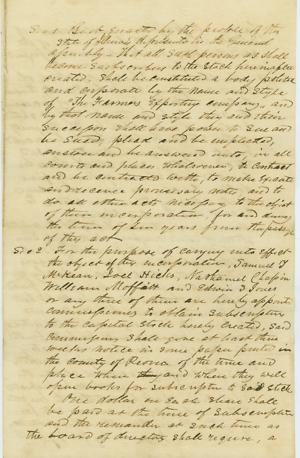 Sec 1 Be it Enacted by the people of the
State of Illinois Represented in the General
assembly - That all Such persons as Shall
become Subscribers to the Stock hereinafter
created, Shall be constituted a body politic
and corporate by the Name and Style
of "The Farmers Exporting company," and
by that Name and Style they and their
Successors Shall have power to Sue and
be Sued, plead and be impleaded,
answer and be answered unto, in all
courts and places whatsoever, to Contract
and be contracted with, to make Execute
and receive promissory notes, and to
do all other acts necessary to the object
of their incorporation, for and during
the term of ten years from the passage
of this act.
Sec 2. For the purpose of carrying into Effect
the object of the incorporation, Samuel T
McKean, Joel Hicks, Nathaniel Chapin
William Moffatt and Edwin S Jones
or any three of them are hereby appointed
commissioners to obtain Subscriptions
to the capital Stock hereby created, Said
Commissioners Shall give at least three
weeks notice in Some paper printed in
the County of Peoria of the time and
place when and where they will
open books for Subscription to Said Stock.
One dollar on Each Share Shall
be paid at the time of Subscription
and the remainder at Such times as
the board of directors Shall require, a